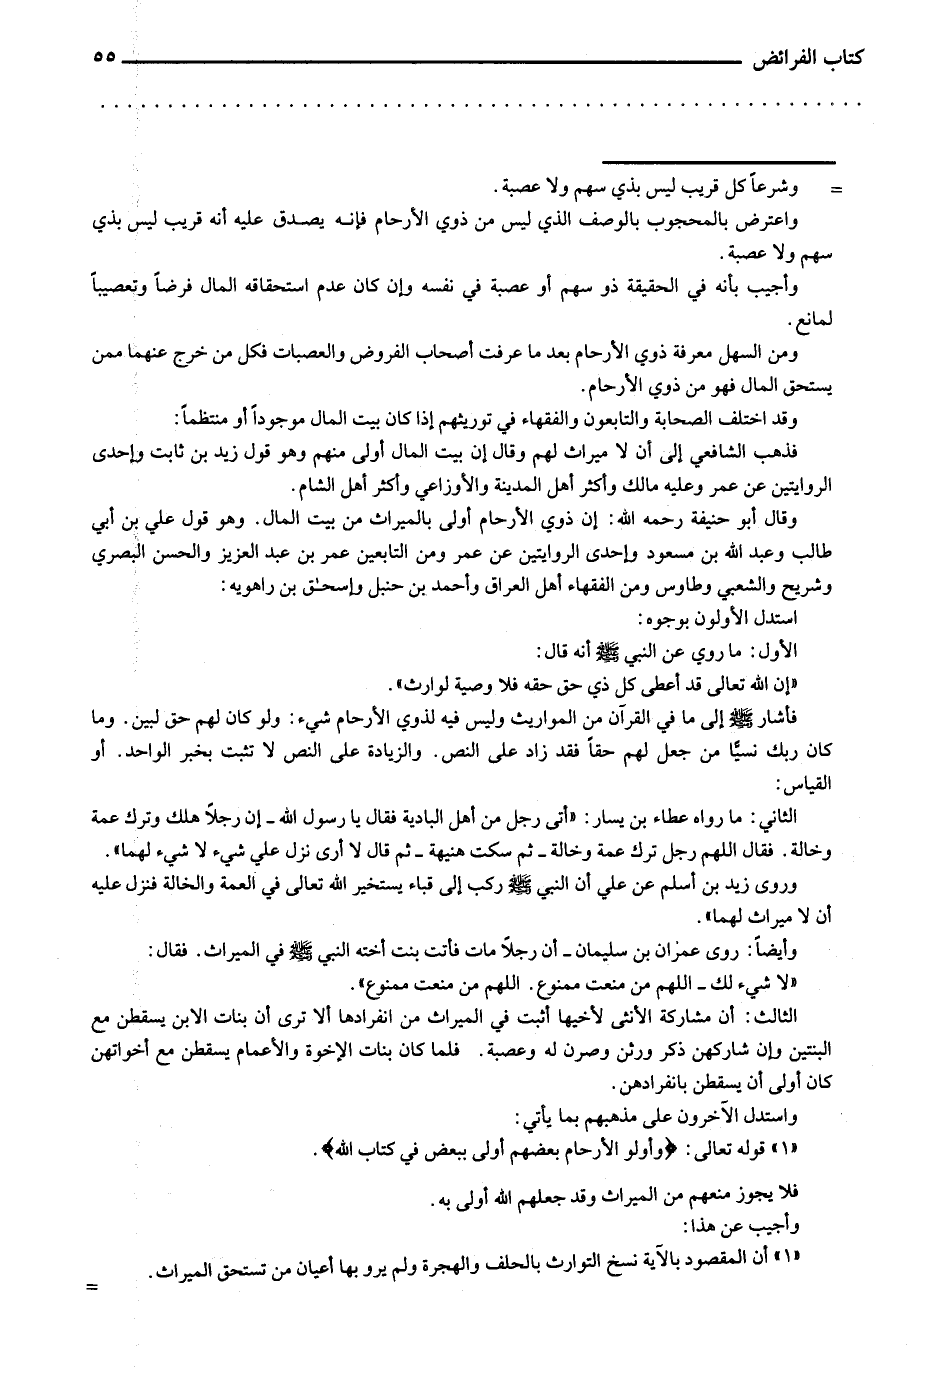 كتاب الفرائض ــــــــــــــــــــــــــــــــــــــــ ٥٥
. . . . . . . . . . . . . . . . . . . . . . . . . . . . . . . . . . . . . . . . . . . . . . . . . . . . . . . .
= وشرعاً كل قريب ليس بذي سهم ولا عصبة.
واعترض بالمحجوب بالوصف الذي ليس من ذوي الأرحام فإنه يصدق عليه أنه قريب ليس بذي
سهم ولا عصبة.
وأجيب بأنه في الحقيقة ذو سهم أو عصبة في نفسه وإن كان عدم استحقاقه المال فرضاً وتعصيباً
لمانع.
ومن السهل معرفة ذوي الأرحام بعد ما عرفت أصحاب الفروض والعصبات فكل من خرج عنهما ممن
يستحق المال فهو من ذوي الأرحام.
وقد اختلف الصحابة والتابعون والفقهاء في توريثهم إذا كان بيت المال موجوداً أو منتظماً:
فذهب الشافعي إلى أن لا ميراث لهم وقال إن بيت المال أولى منهم وهو قول زيد بن ثابت وإحدى
الروايتين عن عمر وعليه مالك وأكثر أهل المدينة والأوزاعي وأكثر أهل الشام.
وقال أبو حنيفة رحمه الله: إن ذوي الأرحام أولى بالميراث من بيت المال. وهو قول علي بن أبي
طالب وعبد الله بن مسعود وإحدى الروايتين عن عمر ومن التابعين عمر بن عبد العزيز والحسن البصري
وشريح والشعبي وطاوس ومن الفقهاء أهل العراق وأحمد بن حنبل وإسحٰق بن راهويه:
استدل الأولون بوجوه:
الأول: ما روي عن النبي ﷺ أنه قال:
«إن الله تعالى قد أعطى كل ذي حق حقه فلا وصية لوارث».
فأشار ﷺ إلى ما في القرآن من المواريث وليس فيه لذوي الأرحام شيء: ولو كان لهم حق لبين. وما
كان ربك نسيًّا من جعل لهم حقاً فقد زاد على النص. والزيادة على النص لا تثبت بخبر الواحد. أو
القياس:
الثاني: ما رواه عطاء بن يسار: «أتى رجل من أهل البادية فقال يا رسول الله ـ إن رجلاً هلك وترك عمة
وخالة. فقال اللهم رجل ترك عمة وخالة ـ ثم سكت هنيهة ـ ثم قال لا أرى نزل علي شيء لا شيء لهما».
وروى زيد بن أسلم عن علي أن النبي ﷺ ركب إلى قباء يستخير الله تعالى في العمة والخالة فنزل عليه
أن لا ميراث لهما».
وأيضاً: روى عمران بن سليمان ـ أن رجلاً مات فأتت بنت أخته النبي ﷺ في الميراث. فقال:
«لا شيء لك ـ اللهم من منعت ممنوع. اللهم من منعت ممنوع».
الثالث: أن مشاركة الأنثى لأخيها أثبت في الميراث من انفرادها ألا ترى أن بنات الابن يسقطن مع
البنتين وإن شاركهن ذكر ورثن وصرن له وعصبة. فلما كان بنات الإخوة والأعمام يسقطن مع أخواتهن
كان أولى أن يسقطن بانفرادهن.
واستدل الآخرون على مذهبهم بما يأتي:
«١» قوله تعالى: ﴿وأولو الأرحام بعضهم أولى ببعض في كتاب الله﴾.
فلا يجوز منعهم من الميراث وقد جعلهم الله أولى به.
وأجيب عن هذا:
«١» أن المقصود بالآية نسخ التوارث بالحلف والهجرة ولم يرو بها أعيان من تستحق الميراث.
=